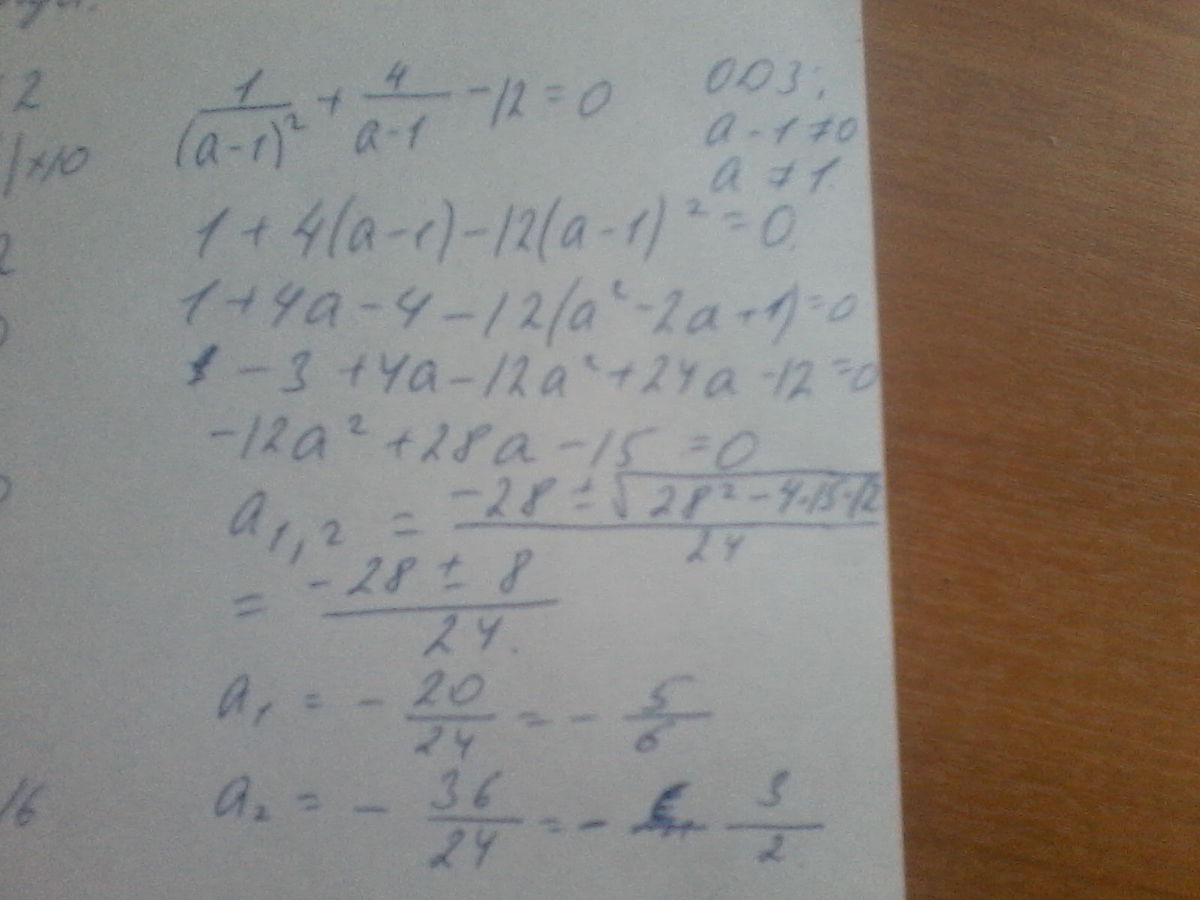 2
1/(a-1)² + 4/(a-1) - 12 = 0
ОДЗ:
a - 1 ≠ 0
a ≠ 1.
|×10
1 + 4(a-1) - 12(a-1)² = 0.
2
1 + 4a - 4 - 12(a² - 2a + 1) = 0
- 3 + 4a - 12a² + 24a - 12 = 0
-12a² + 28a - 15 = 0
a₁,₂ = (-28 ± √(28² - 4·15·12))/24
= (-28 ± 8)/24.
a₁ = - 20/24 = - 5/6
a₂ = - 36/24 = - 3/2
16